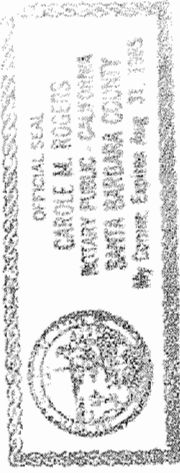 OFFICIAL SEAL
CAROLE M. ROGERS
NOTARY PUBLIC - CALIFORNIA
SANTA BARBARA COUNTY
My Comm. Expires Aug. 31,